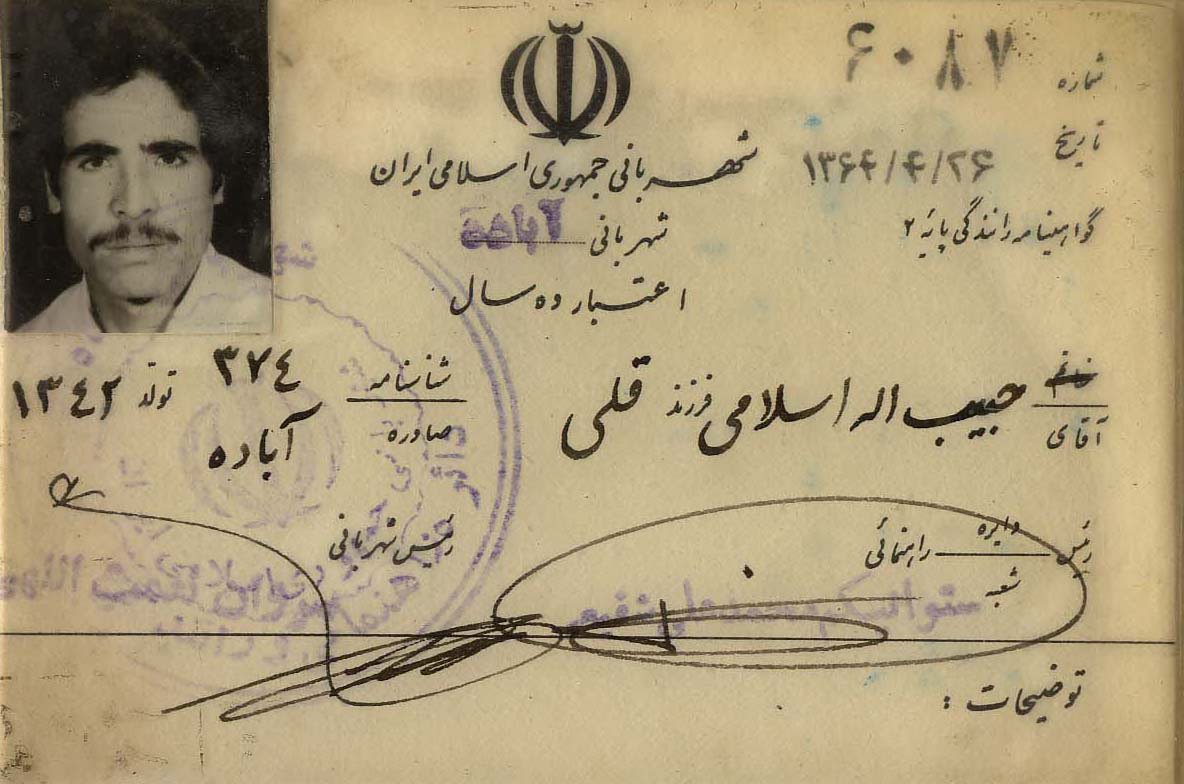 شماره ۶۰۸۷
تاریخ ۱۳۶۴/۴/۲۶
گواهینامه رانندگی پایه ۲
شهربانی جمهوری اسلامی ایران
شهربانی آباده
اعتبار ده سال
خانم
آقای حبیب اله اسلامی فرزند قلی
شناسنامه ۳۷۴ تولد ۱۳۴۲
صادره آباده
رئیس دایره راهنمائی
شعبه
رئیس شهربانی
توضیحات :